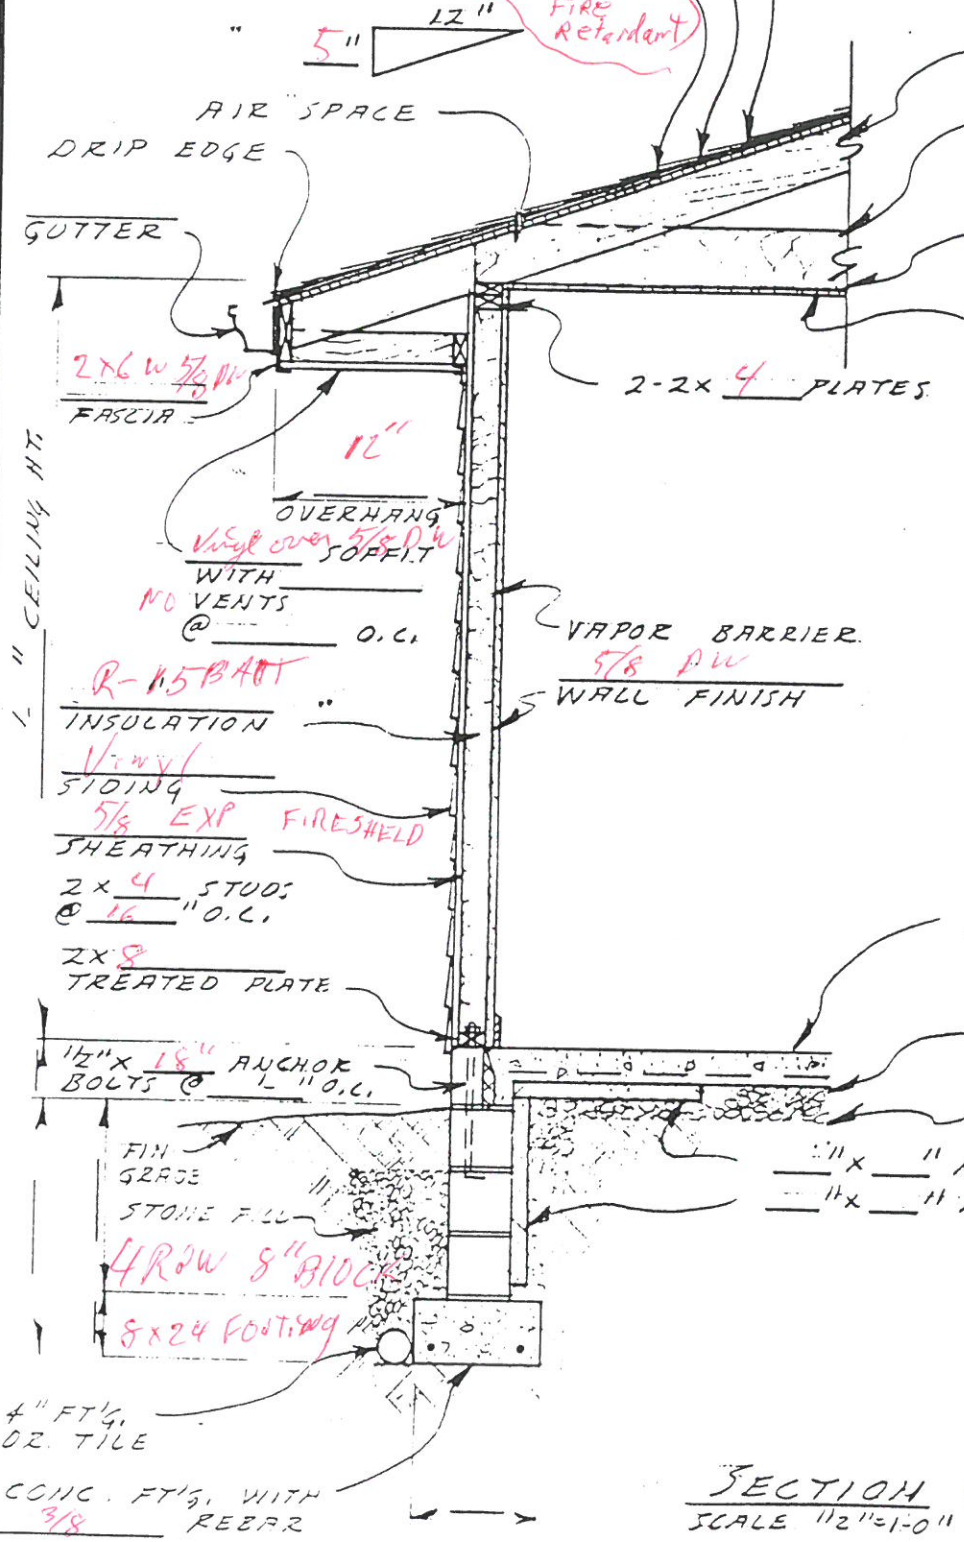 12"
5"
FIRE
Retardant
AIR SPACE
DRIP EDGE
GUTTER
2x6 W 5/8 DW
FASCIA
2-2x 4 PLATES
12"
OVERHANG
Vinyl over 5/8 DW
SOFFIT
WITH
NO VENTS
@ O.C.
'- " CEILING HT.
VAPOR BARRIER
5/8 DW
WALL FINISH
R-15 BATT
INSULATION
Vinyl
SIDING
5/8 EXP FIRESHELD
SHEATHING
2 x 4 STUDS
@ 16 "O.C.
2x 8
TREATED PLATE
1/2" x 18" ANCHOR
BOLTS @ '- "O.C.
FIN
GRADE
STONE FILL
4 ROW 8" BLOCK
8x24 FOOTING
" x "
" x "
4" FT'G.
DR. TILE
CONC. FT'G. WITH
3/8 REBAR
SECTION
SCALE 1/2"=1'-0"